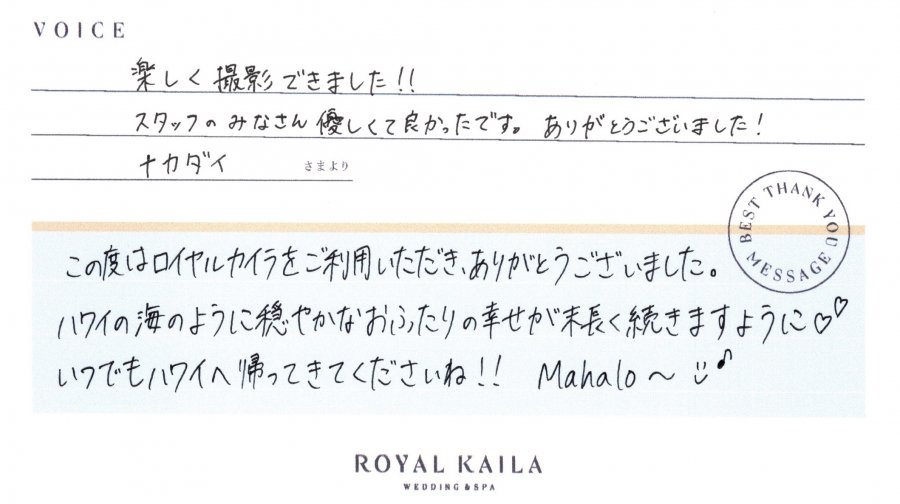 VOICE
楽しく撮影できました!!
スタッフのみなさん優しくて良かったです。ありがとうございました!
ナカダイ さまより
BEST THANK YOU MESSAGE
この度はロイヤルカイラをご利用いただき、ありがとうございました。
ハワイの海のように穏やかなおふたりの幸せが末長く続きますように♡♡
いつでもハワイへ帰ってきてくださいね!! Mahalo~ ☺♪
ROYAL KAILA
WEDDING & SPA